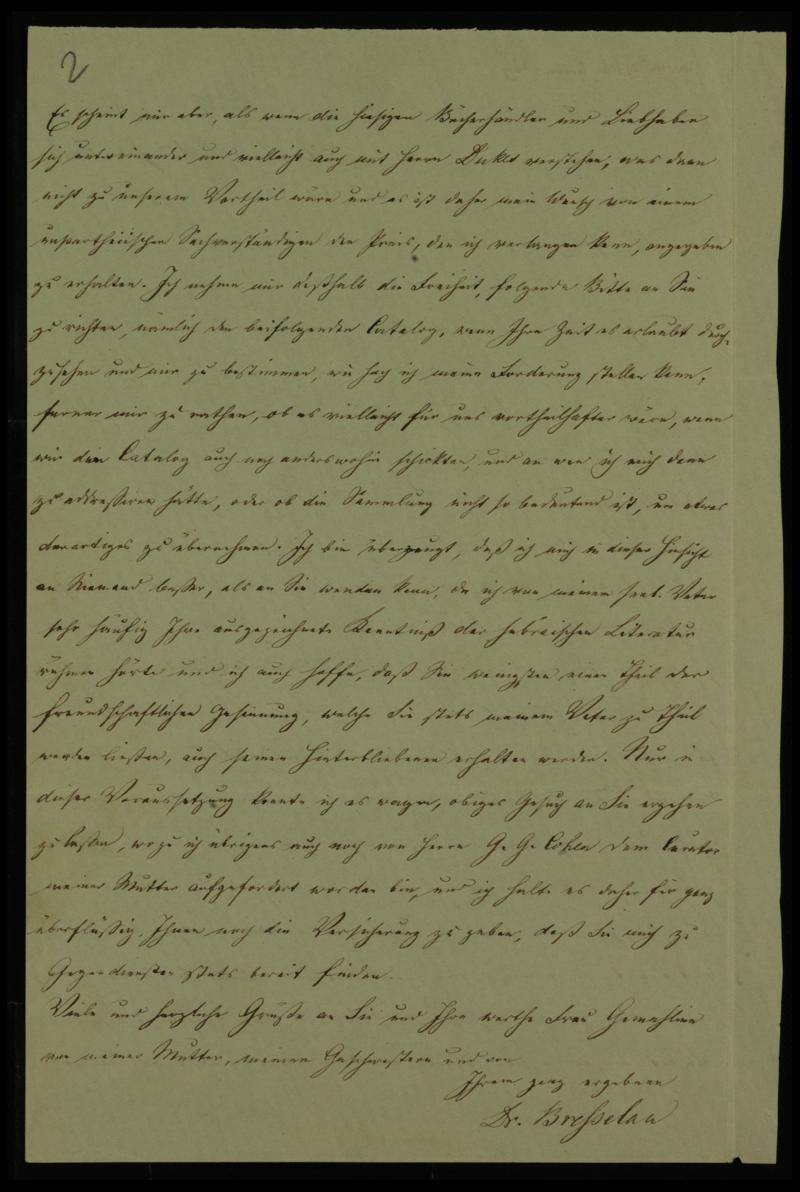 2
Es scheint mir aber, als wenn die hiesigen Bücherhändler und Liebhaber
sich untereinander und vielleicht auch mit Herrn Dukes verstehen, was dann
nicht zu unserem Vortheil wäre und es ist daher mein Wunsch von einem
unpartheiischen Sachverständigen den Preis, den ich verlangen kann, angegeben
zu erhalten. Ich nehme mir deßhalb die Freiheit, folgende Bitte an Sie
zu richten, nämlich den beifolgenden Catalog, wenn Ihre Zeit es erlaubt durch-
zusehen und mir zu bestimmen, wie hoch ich meine Forderung stellen kann,
ferner mir zu rathen, ob es vielleicht für uns vortheilhafter wäre, wenn
wir den Catalog auch noch anderswohin schickten, und an wen ich mich dann
zu addressiren hätte, oder ob die Sammlung nicht so bedeutend ist, um etwas
derartiges zu übernehmen. Ich bin überzeugt, daß ich mich in dieser Hinsicht
an Niemand besser, als an Sie wenden kann, da ich von meinem seel. Vater
sehr häufig Ihre ausgezeichnete Kenntniß der hebräischen Literatur
rühmen hörte und ich auch hoffe, daß Sie wenigsten einen Theil der
freundschaftlichen Gesinnung, welche Sie stets meinem Vater zu Theil
werden ließen, auch seinen Hinterbliebenen erhalten werden. Nur in
dieser Voraussetzung konnte ich es wagen, obiges Gesuch an Sie ergehen
zu lassen, wozu ich übrigens auch noch von Herrn G. G. Cohen dem Curator
meiner Mutter aufgefordert worden bin, und ich halte es daher für ganz
überflüssig, Ihnen noch die Versicherung zu geben, daß Sie mich zu
Gegendiensten stets bereit finden.
Viele und herzliche Grüße an Sie und Ihre werthe Frau Gemahlin
von meiner Mutter, meinen Geschwistern und von
Ihrem ganz ergebenen
Dr. Bresselau